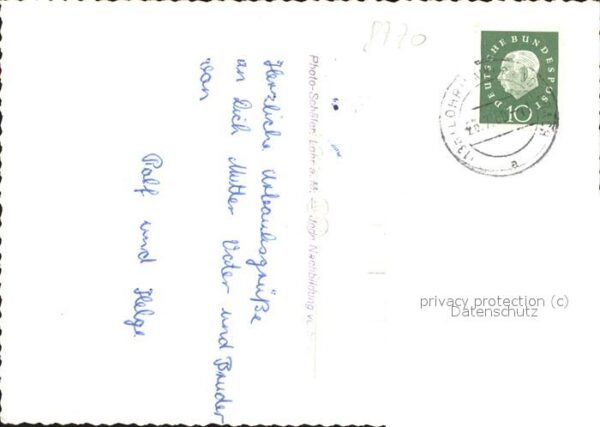 Herzliche Urlaubsgrüße
an Dich Mutter Vater und Bruder
von
Ralf und Helga
Photo-Schäfer, Lohr a. M.
Jede Nachbildung
DEUTSCHE BUNDESPOST
10
LOHR
a
privacy protection (c)
Datenschutz